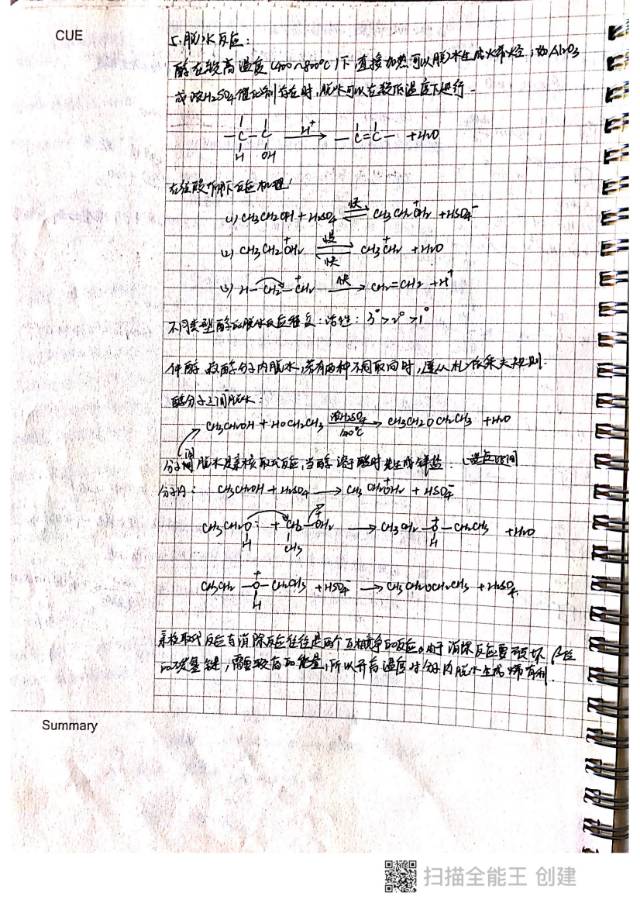 CUE
5. 脱水反应:
醇在较高温度(400~800℃)下直接加热可以脱水生成烯烃,如Al2O3
或浓H2SO4催化剂存在时,脱水可以在较低温度下进行.
-C-C- H+ → -C=C- +H2O
H OH
在酸作用下反应机理:
(1) CH3CH2OH + H2SO4 快 ⇌ CH3CH2OH2+ + HSO4-
(2) CH3CH2OH2+ 慢 ⇌ 快 CH3CH2+ + H2O
(3) H-CH2-CH2+ 快 → CH2=CH2 + H+
不同类型醇的脱水反应 活性: 3°>2°>1°
仲醇、叔醇分子内脱水,若有两种不同取向时,遵从札依采夫规则.
醇分子之间脱水:
CH3CH2OH + HOCH2CH3 浓H2SO4 → CH3CH2OCH2CH3 + H2O
分子间脱水是亲核取代反应,当醇 酸时先生成 盐:
CH3CH2OH + H2SO4 → CH3CH2OH2+ + HSO4-
CH3CH2O: + CH2-OH2+ → CH3CH2-O+-CH2CH3 + H2O
H CH3 H
CH3CH2-O+-CH2CH3 + HSO4- → CH3CH2OCH2CH3 + H2SO4
H
亲核取代反应与消除反应往往是两个互相竞争的反应。由于消除反应需破坏β位
的碳氢键,需要较高的能量,所以升高温度对分子内脱水生成烯有利.
Summary
扫描全能王 创建